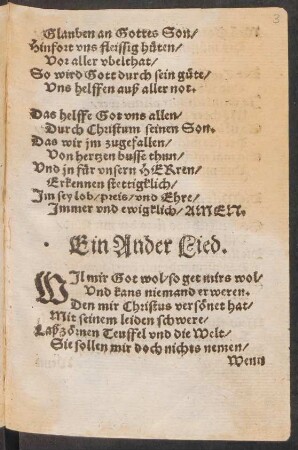 3
Glauben an Gottes Son/
Hinfort vns fleissig hüten/
Vor aller vbelthat/
So wird Gott durch sein güte/
Vns helffen auß aller not.
Das helffe Got vns allen/
Durch Christum seinen Son.
Das wir jm zugefallen/
Von hertzen busse thun/
Und jn für vnsern HERren/
Erkennen stettigklich/
Jm sey lob/preis/vnd Ehre/
Jmmer vnd ewigklich/ AMEN.
Ein Ander Lied.
WIl mir Got wol/so get mirs wol/
Vnd kans niemand erweren.
Den mir Christus versönet hat/
Mit seinem leiden schwere/
Laß zörnen Teuffel vnd die Welt/
Sie sollen mir doch nichts nemen/
Wenn